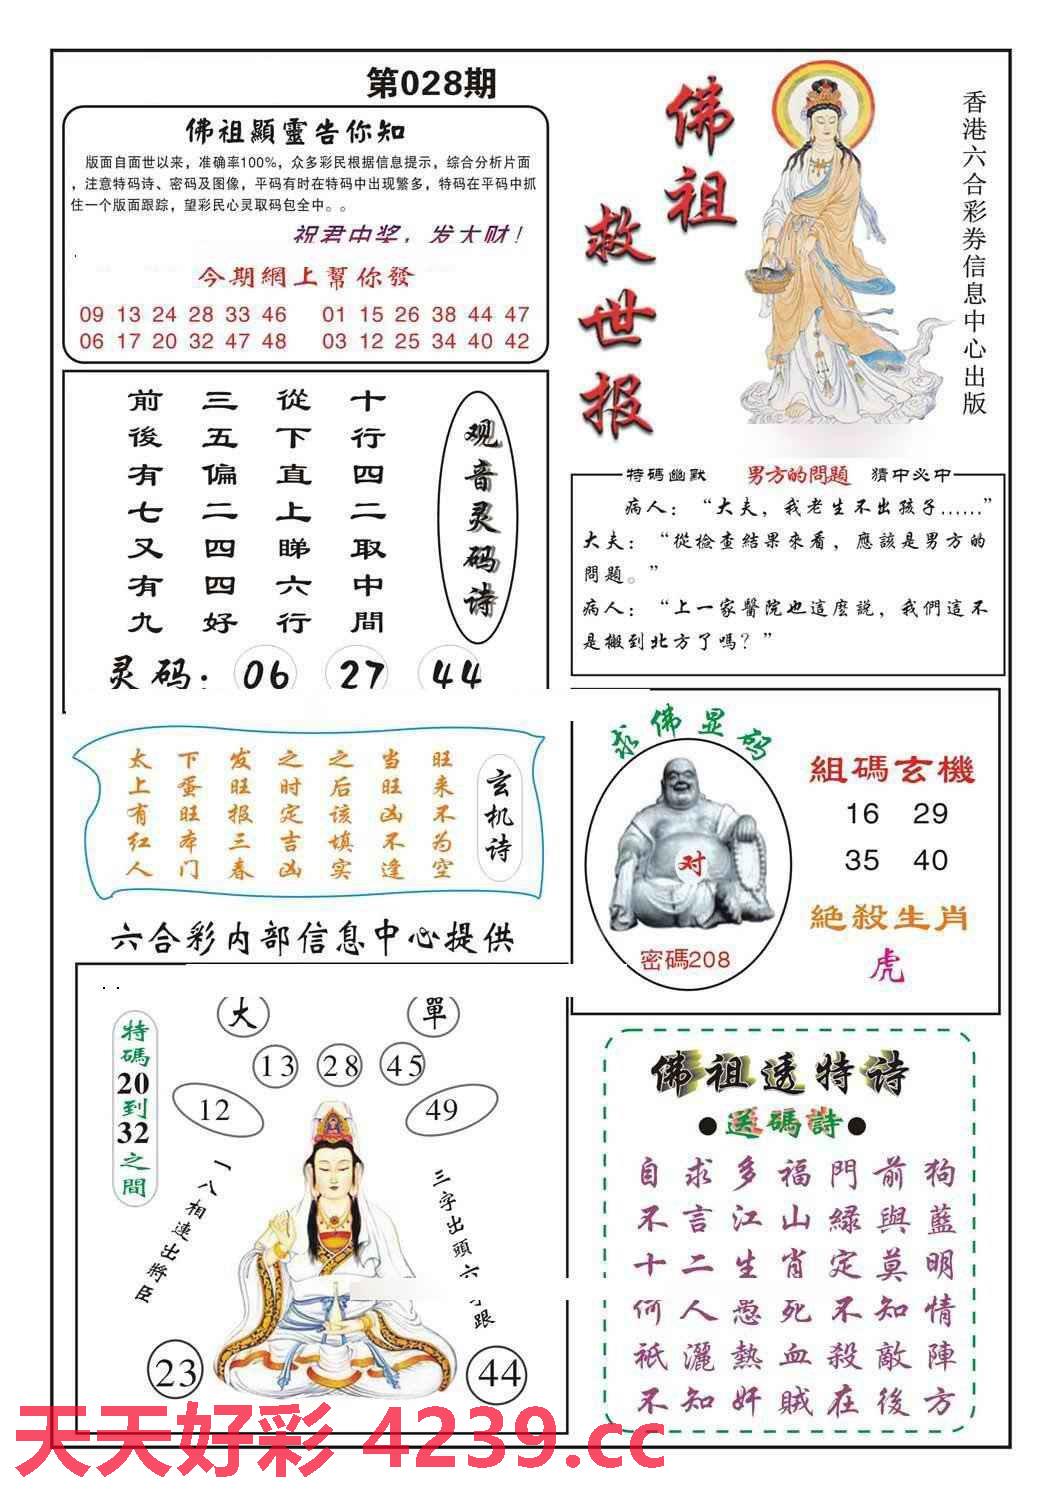 第028期
佛祖顯靈告你知
版面自面世以来，准确率100%，众多彩民根据信息提示，综合分析片面
，注意特码诗、密码及图像，平码有时在特码中出现繁多，特码在平码中抓
住一个版面跟踪，望彩民心灵取码包全中。。
祝君中奖，发大财！
今期網上幫你發
09 13 24 28 33 46 01 15 26 38 44 47
06 17 20 32 47 48 03 12 25 34 40 42
佛祖
救世报
香港六合彩券信息中心出版
十行四二取中間
從下直上睇六行
三五偏二四四好
前後有七又有九
观音灵码诗
灵码：06 27 44
特碼幽默 男方的問題 猜中必中
病人：“大夫，我老生不出孩子……”
大夫：“從檢查結果來看，應該是男方的
問題。”
病人：“上一家醫院也這麼說，我們這不
是搬到北方了嗎？”
玄机诗
旺来不为空
当旺凶不逢
之后该填实
之时定吉凶
发旺报三春
下蛋旺本门
太上有红人
六合彩内部信息中心提供
求佛显码
对
密碼208
組碼玄機
16 29
35 40
絕殺生肖
虎
大 單
13 28 45
12 49
特碼20到32之間
一八相連出將臣
三字出頭六
跟
23 44
佛祖透特诗
●送碼詩●
自求多福門前狗
不言江山綠與藍
十二生肖定莫明
何人愚死不知情
衹灑熱血殺敵陣
不知奸賊在後方
天天好彩 4239.cc